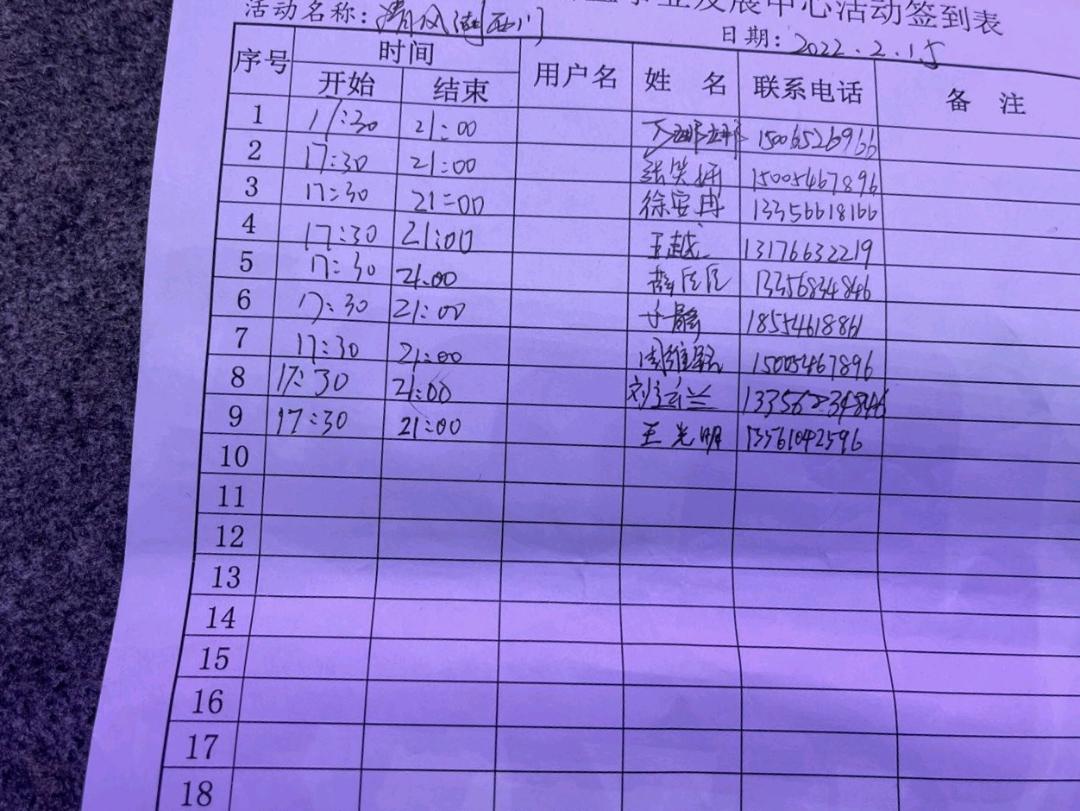 业发展中心活动签到表
活动名称: 清风湖西门 日期: 2022.2.15
序号 时间 用户名 姓 名 联系电话 备 注
开始 结束
1 17:30 21:00 娜娜 15006526966
2 17:30 21:00 张笑妍 15005467896
3 17:30 21:00 徐安冉 13356618166
4 17:30 21:00 王越 13176632219
5 17:30 21:00 13356834846
6 17:30 21:00 于静 18554618861
7 17:30 21:00 周 15005467896
8 17:30 21:00 刘兰 13356834846
9 17:30 21:00 王光明 13561042596
10
11
12
13
14
15
16
17
18